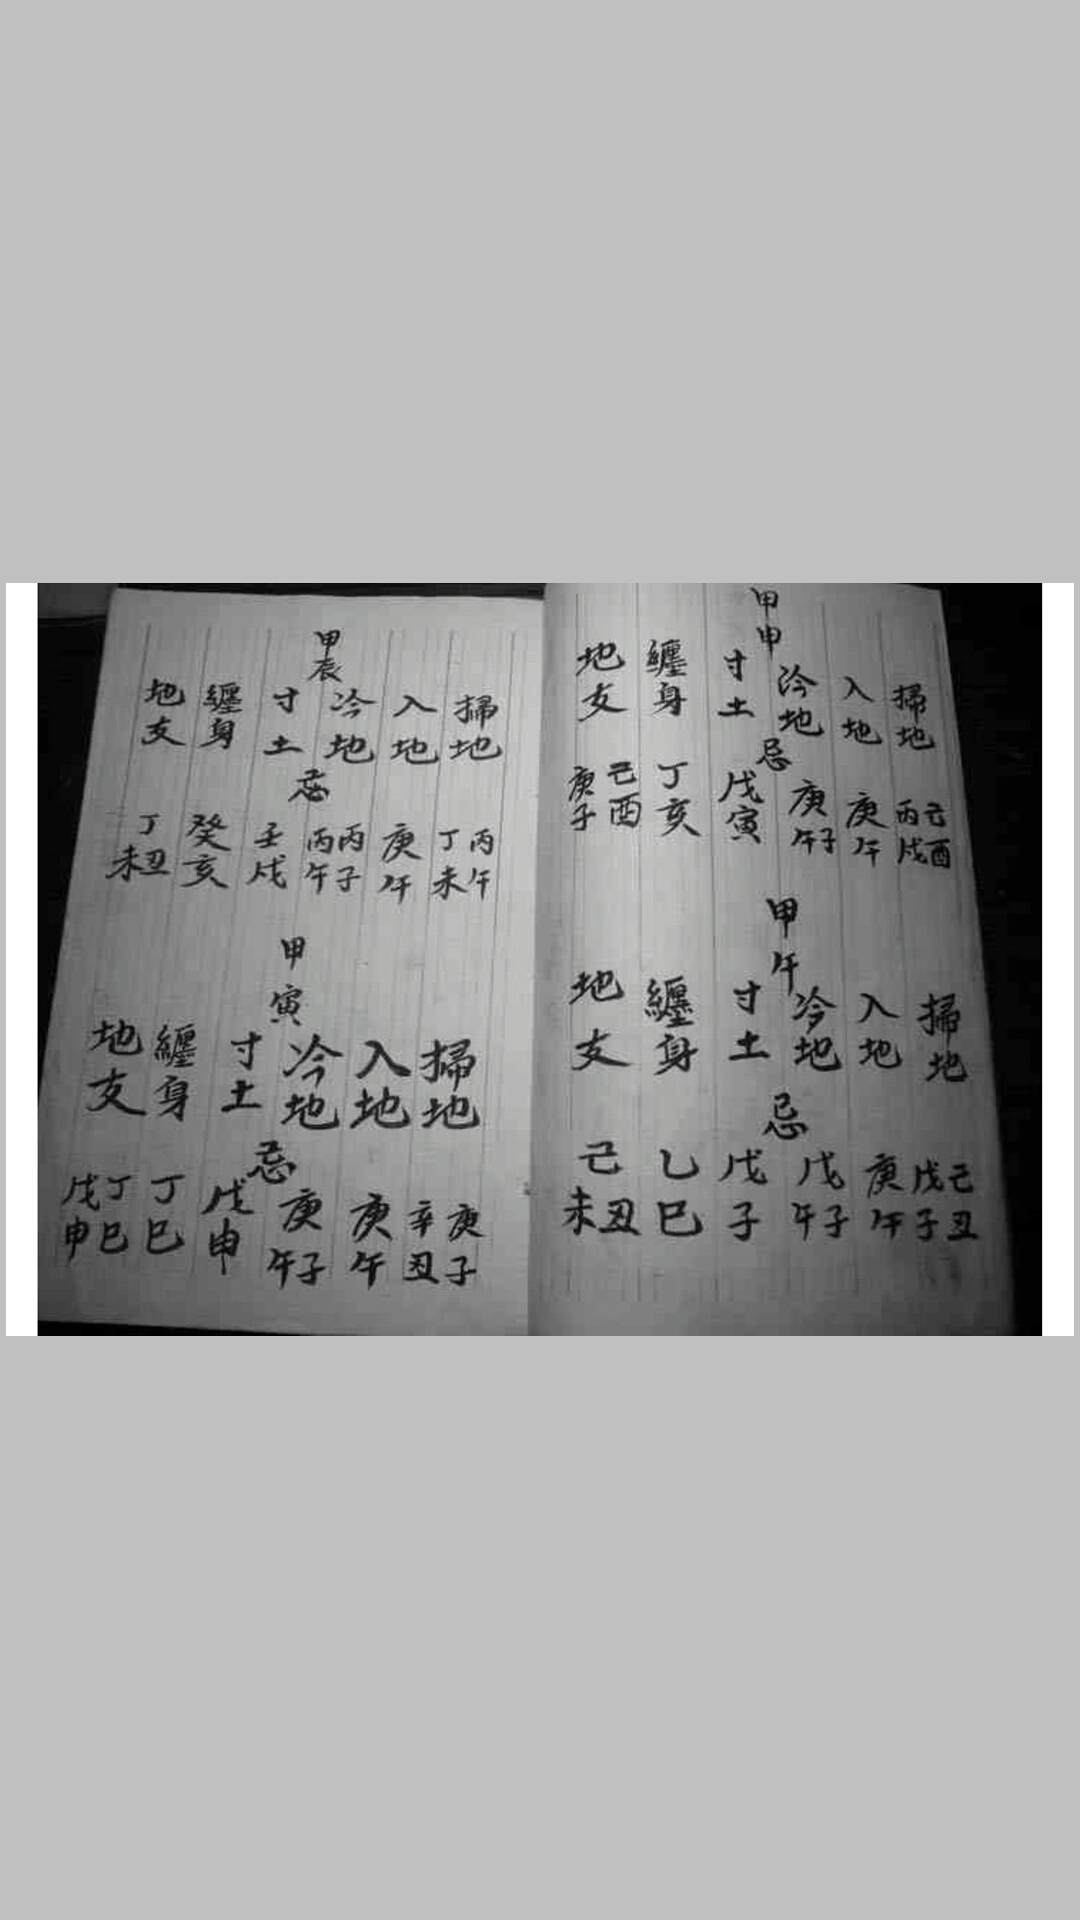 甲申
掃地
入地
冷地
寸土
纏身
地支
忌
己酉
丙戌
庚午
庚午子
戊寅
丁亥
己酉
庚子
甲午
掃地
入地
冷地
寸土
纏身
地支
忌
己丑
戊子
庚午
戊午子
戊子
乙巳
己未丑
甲辰
掃地
入地
冷地
寸土
纏身
地支
忌
丙午
丁未
庚午
丙子
丙午
壬戌
癸亥
丁未丑
甲寅
掃地
入地
冷地
寸土
纏身
地支
忌
庚子
辛丑
庚午
庚午子
戊申
丁巳
丁巳
戊申